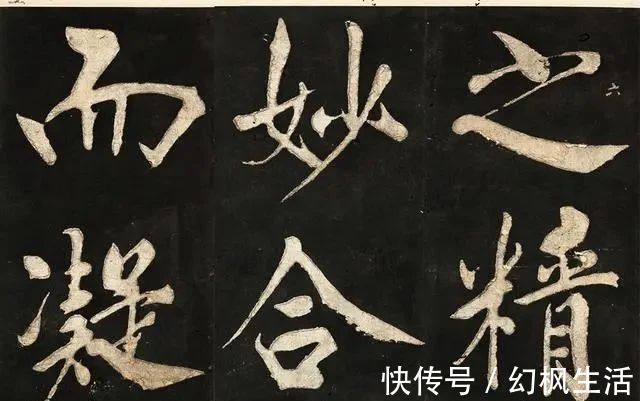 之精
妙合
而凝
六
快传号/幻枫生活